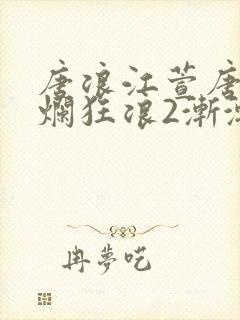 唐浪江萱唐
爛狂浪2漸
冉夢呓